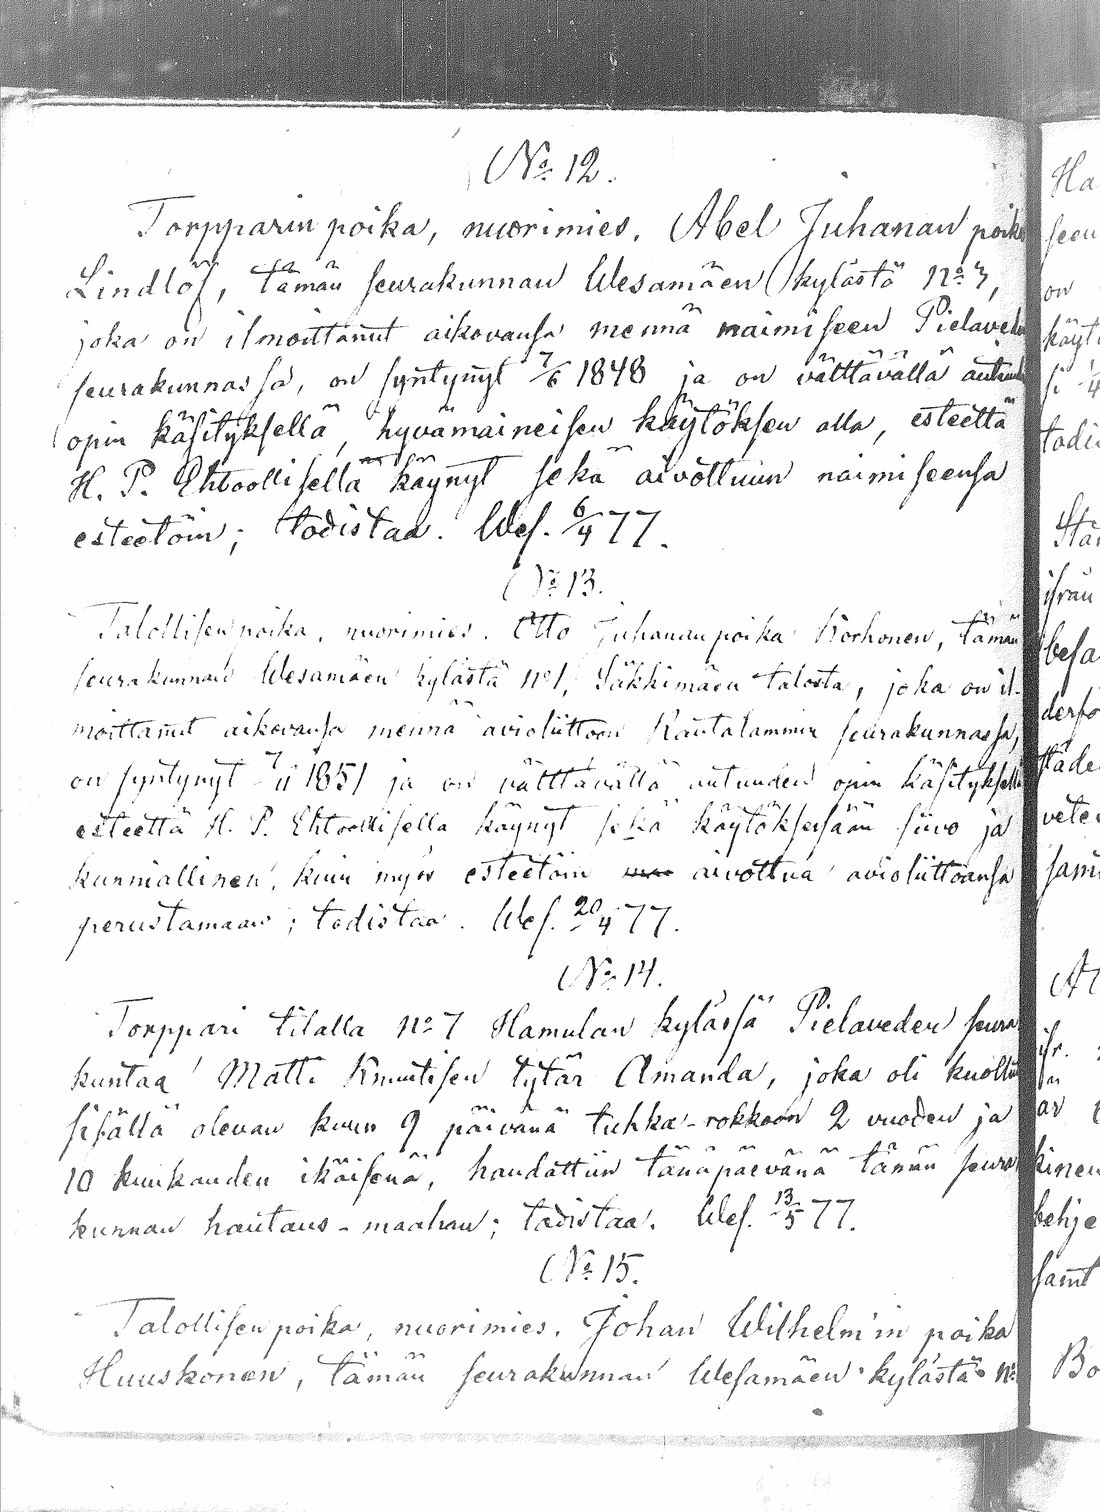 No 12.
Torpparin poika, nuorimies, Abel Juhanan poika
Lindlöf, tämän seurakunnan Wesamäen kylästä No 3,
joka on ilmoittanut aikovansa mennä naimiseen Pielaveden
seurakunnassa, on syntynyt 7/6 1848 ja on välttävällä autuuden
opin käsityksellä, hyvämaineisen käytöksen alla, esteettä
H. P. Ehtoollisella käynyt sekä aivottuun naimiseensa
esteetöin; todistaa. Wes. 6/4 77.
No 13.
Talollisen poika, nuorimies. Otto Juhanan poika Korhonen, tämän
seurakunnan Wesamäen kylästä No 1, Säkkimäen talosta, joka on il-
moittanut aikovansa mennä avioliittoon Rautalammin seurakunnassa,
on syntynyt 7/11 1851 ja on välttävällä autuuden opin käsityksellä
esteettä H. P. Ehtoollisella käynyt sekä käytöksessään siivo ja
kunniallinen, kuin myös esteetöin aivottua avioliittoansa
perustamaan; todistaa. Wes. 20/4 77.
No 14.
Torppari tilalla No 7 Hamulan kylässä Pielaveden seura
kuntaa Matti Knuutisen tytär Amanda, joka oli kuollut
sisällä olevan kuun 9 päivänä tuhka-rokkoon 2 vuoden ja
10 kuukauden ikäisenä, haudattiin tänäpäevänä tämän seura
kunnan hautaus-maahan; todistaa. Wes. 13/5 77.
No 15.
Talollisen poika, nuorimies. Johan Wilhelm'in poika
Huuskonen, tämän seurakunnan Wesamäen kylästä No
Ha
seu
on
käyt
si
todi
Stä
ifrån
besa
derfö
städe
vete
samt
ifr.
ar
kinen
behje
samt
Bo